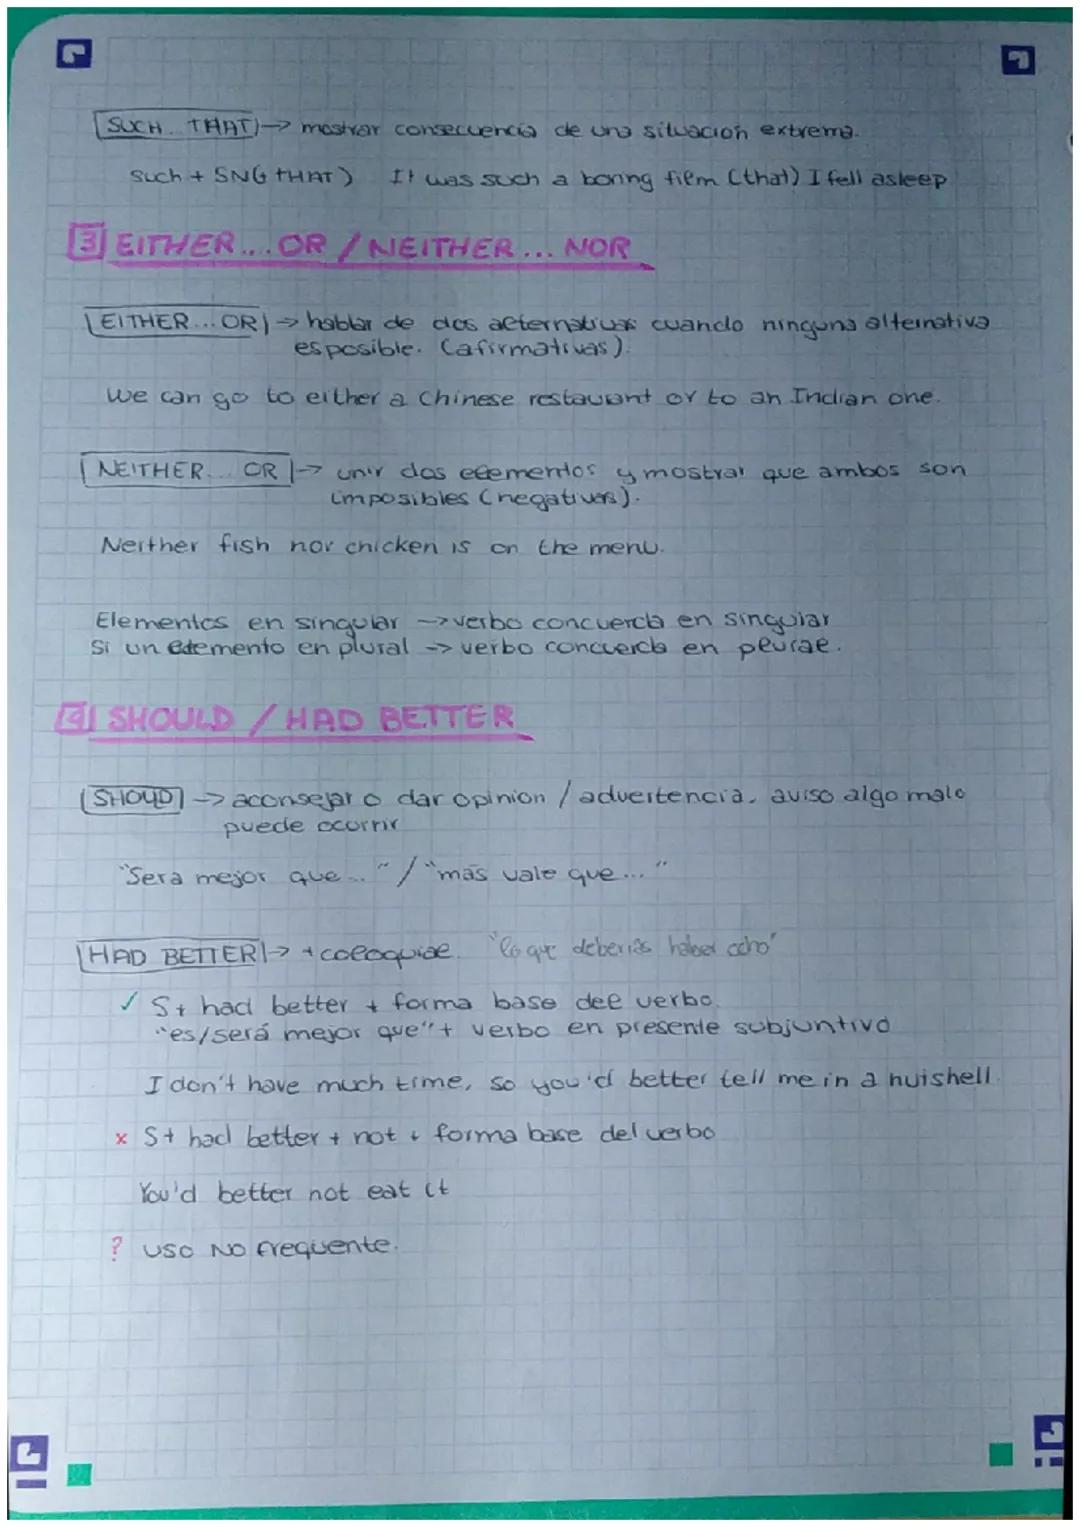 SUCH... THAT → mostrar consecuencia de una situación extrema.
such + SN (+ THAT) It was such a boring film (that) I fell asleep
3 EITHER... OR / NEITHER... NOR
EITHER... OR → hablar de dos alternativas cuando ninguna alternativa
es posible. (afirmativas).
We can go to either a Chinese restaurant or to an Indian one.
NEITHER... OR → unir dos elementos y mostrar que ambos son
imposibles (negativas).
Neither fish nor chicken is on the menu.
Elementos en singular → verbo concuerda en singular
Si un elemento en plural → verbo concuerda en plural.
4 SHOULD / HAD BETTER
SHOULD → aconsejar o dar opinion / advertencia, aviso algo malo
puede ocurrir
"Sera mejor que..." / "más vale que..."
HAD BETTER → + coloquial. "lo que deberías haber echo"
✓ S + had better + forma base del verbo.
"es/será mejor que" + verbo en presente subjuntivo
I don't have much time, so you'd better tell me in a nutshell.
x S + had better + not + forma base del verbo
You'd better not eat it
? USO NO frequente.